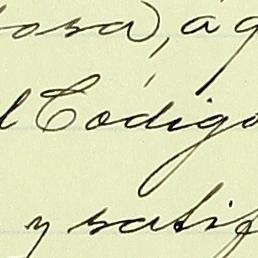 osa), á q
l Código
y satif